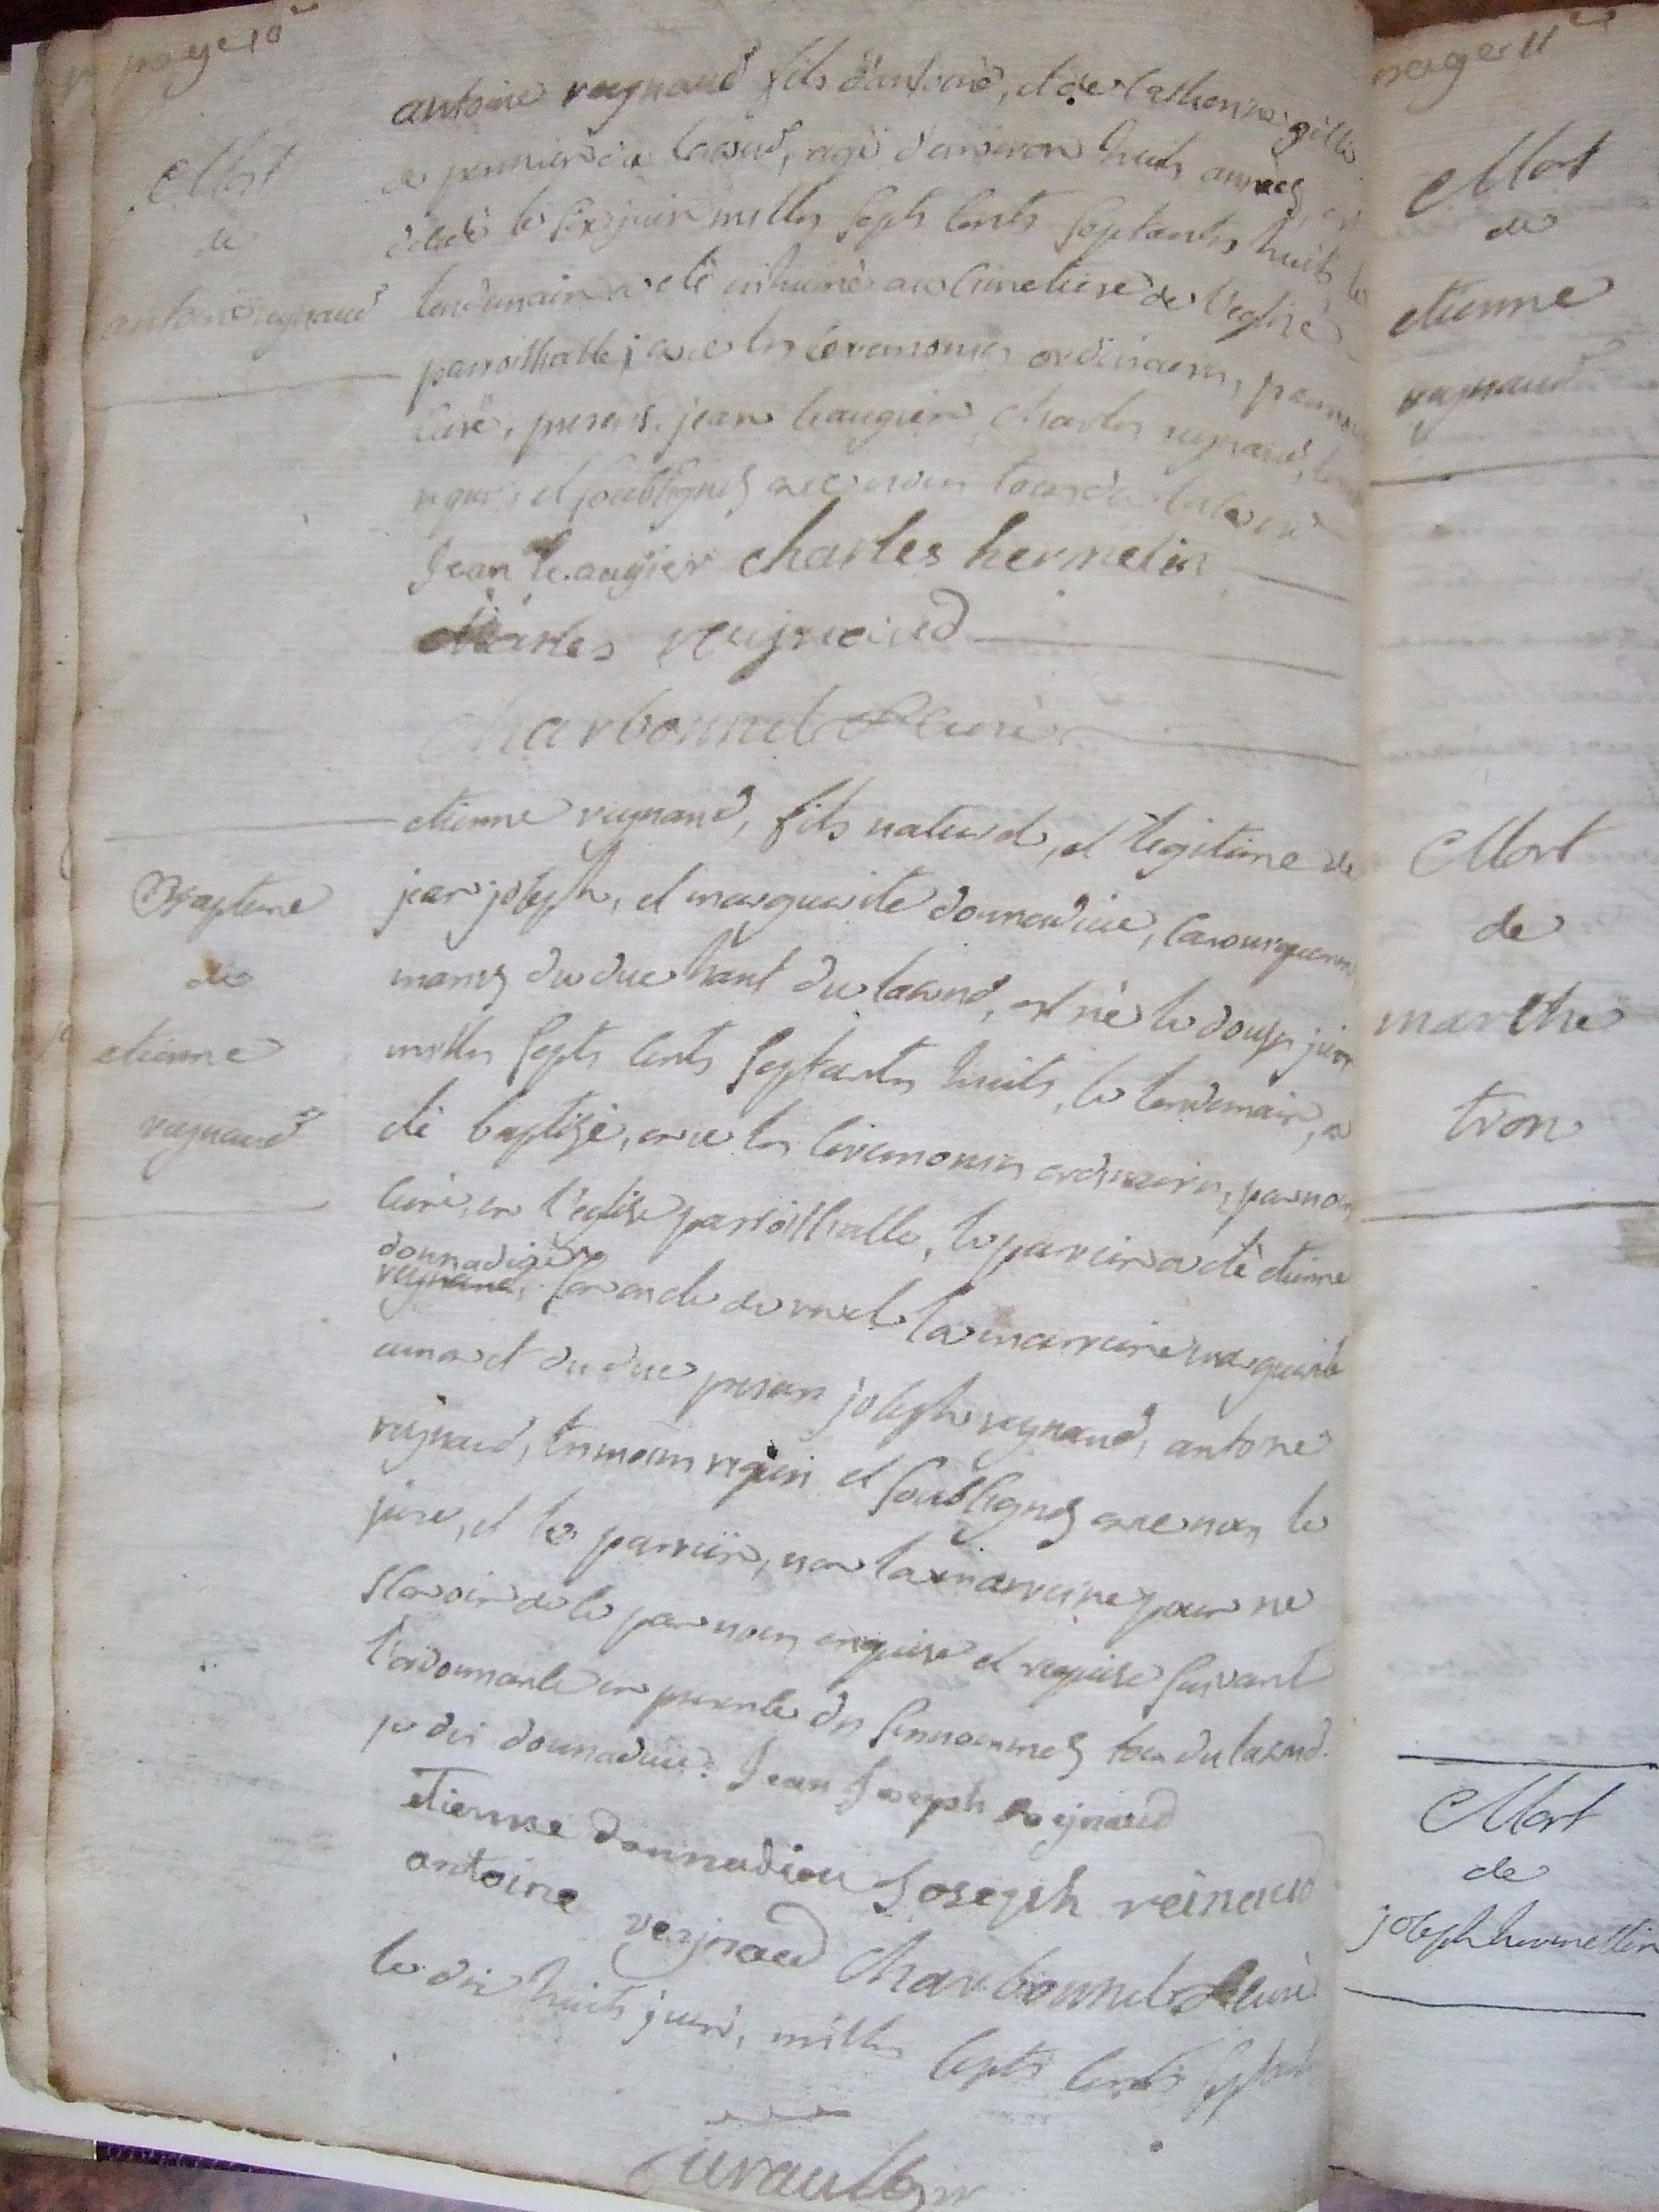 page 10
Mort
de
antoine reynaud
antoine reynaud fils d'antoine, et de catherine gillis
de du lacaud, agé d'environ huits années, est
décédé le six juin milles septs cents septantes huits, le
lendemain a eté inhumé au cimetiere de l'eglise
parroissialle, avec les ceremonies ordinaires, par nous
curé, presens, jean laugier, charles reynaud,
requis et soubsignés avec nous tous du
Jean laugier charles hermelin
charles reijnaud
charbonnel curé
Bapteme
de
etienne
reynaud
etienne reynaud, fils naturel, et legitime de
jean joseph, et marguerite donnadieu,
mariés du duc hant du lacaud, est né le douse juin
milles septs cents septantes huits, le lendemain, a
été baptisé, avec les ceremonies ordinaires, par nous
curé, en l'eglise parroissialle, le parrein a été etienne
donnadieu
reynaud, son oncle et la marreine marguerite
du duc presens joseph reynaud, antoine
reynaud, temoins requis et soubsignés avec nous le
pere, et le parrein, non la marreine pour ne
scavoir de ce par nous enquise et requise suivant
l'ordonnance en presence des susnommés tous du lacaud.
je dis donnadieu. Jean Joseph Reijnaud
etienne donnadieu Joseph reinaud
antoine reijnaud charbonnel curé
le dix huits juin, milles septs cents septantes
page 11
Mort
de
etienne
reynaud
Mort
de
marthe
tron
Mort
de
joseph hermellin